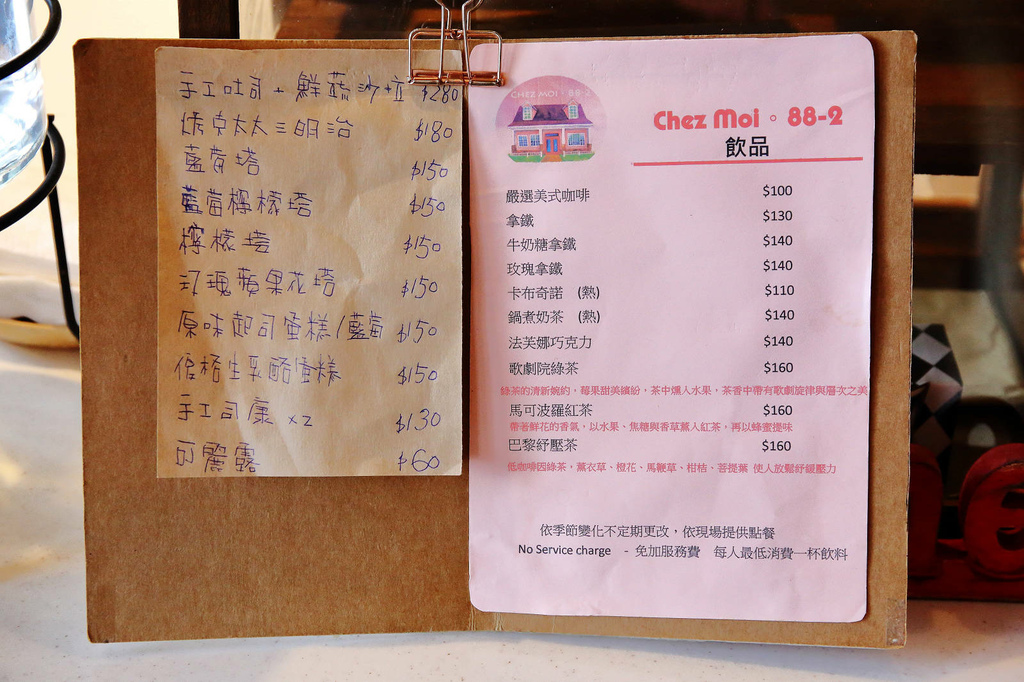 手工吐司+鮮蔬沙拉 $280
烤克太太三明治 $180
藍莓塔 $150
藍莓檸檬塔 $150
檸檬塔 $150
玫瑰蘋果花塔 $150
原味起司蛋糕/藍莓 $150
伯格生乳酪蛋糕 $150
手工司康 x2 $130
可麗露 $60
CHEZ MOI・88-2
Chez Moi。88-2
飲品
嚴選美式咖啡 $100
拿鐵 $130
牛奶糖拿鐵 $140
玫瑰拿鐵 $140
卡布奇諾 (熱) $110
鍋煮奶茶 (熱) $140
法芙娜巧克力 $140
歌劇院綠茶 $160
綠茶的清新婉約,莓果甜美繽紛,茶中燻人水果,茶香中帶有歌劇旋律與層次之美
馬可波羅紅茶 $160
帶著鮮花的香氣,以水果、焦糖與香草薰入紅茶,再以蜂蜜提味
巴黎紓壓茶 $160
低咖啡因綠茶,薰衣草、橙花、馬鞭草、柑桔、菩提葉 使人放鬆紓緩壓力
依季節變化不定期更改,依現場提供點餐
No Service charge - 免加服務費 每人最低消費一杯飲料